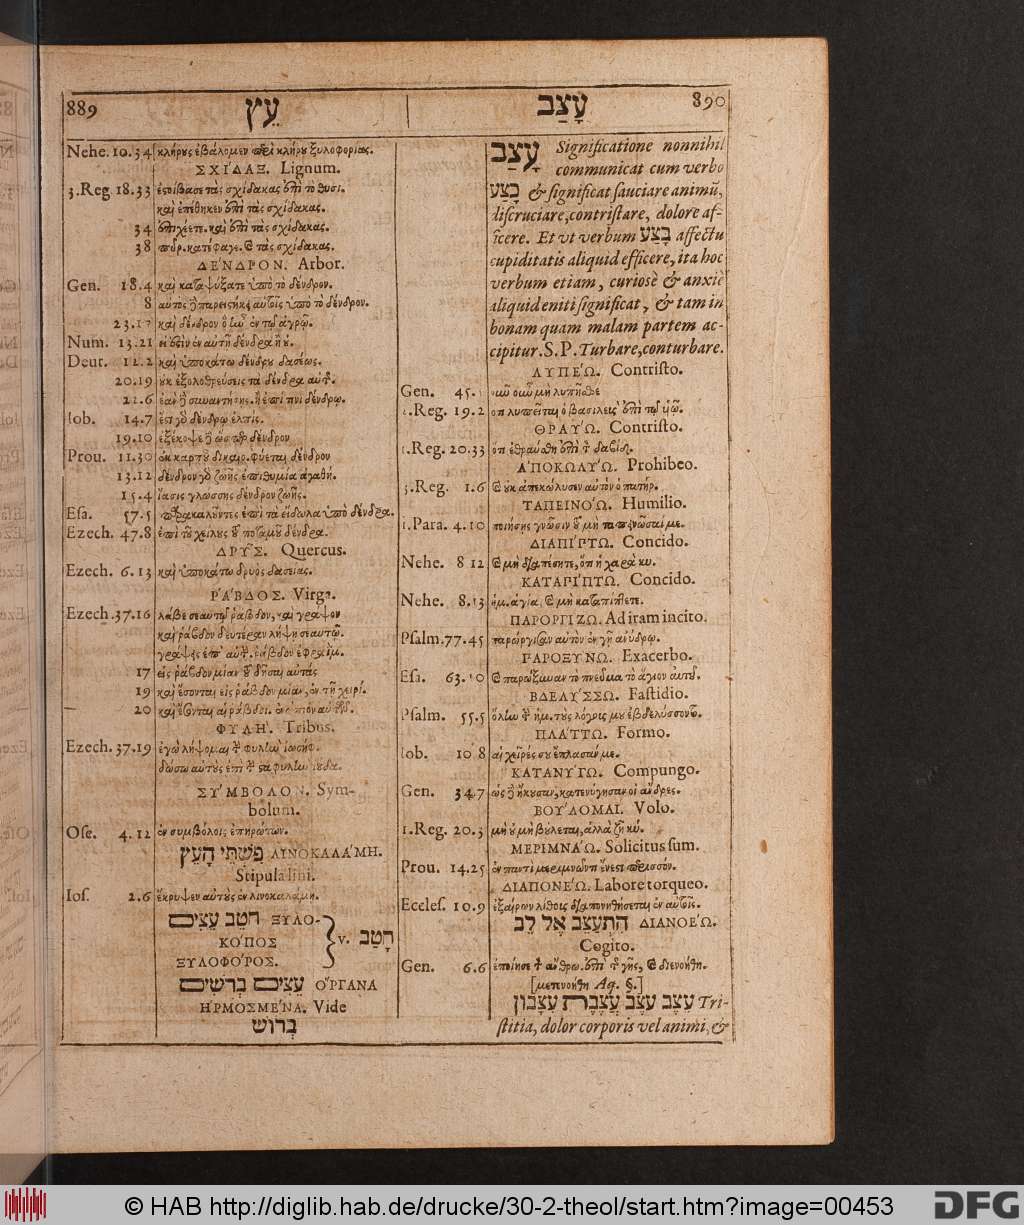 889 עֵץ
Nehe. 10.34 κλήρους ἐβάλομεν περὶ κλήρου ξυλοφορίας.
ΣΧΙ΄ΔΑΞ. Lignum.
3.Reg. 18.33 ἐστοίβασε τὰς σχίδακας ἐπὶ τὸ θυσι.
καὶ ἐπέθηκεν ἐπὶ τὰς σχίδακας.
34 ἐπιχέετε. καὶ ἐπὶ τὰς σχίδακας.
38 πῦρ. κατέφαγε. καὶ τὰς σχίδακας.
ΔΕ΄ΝΔΡΟΝ. Arbor.
Gen. 18.4 καὶ καταψύξατε ὑπὸ τὸ δένδρον.
8 αὐτὸς δὲ παρειστήκει αὐτοῖς ὑπὸ τὸ δένδρον.
23.17 καὶ δένδρον ὃ ἦν ἐν τῷ ἀγρῷ.
Num. 13.21 εἰ ἔστιν ἐν αὐτῇ δένδρα ἢ οὔ.
Deut. 12.2 καὶ ὑποκάτω δένδρου δασέως.
20.19 οὐκ ἐξολοθρεύσεις τὰ δένδρα αὐτῆς.
22.6 ἐὰν δὲ συναντήσῃς. ἢ ἐπὶ παντὶ δένδρῳ.
Iob. 14.7 ἔστι γὰρ δένδρῳ ἐλπίς.
19.10 ἐξέκοψε δὲ ὥσπερ δένδρον
Prou. 11.30 ἐκ καρποῦ δικαιο. φύεται δένδρον
13.12 δένδρον γὰρ ζωῆς ἐπιθυμία ἀγαθή.
15.4 ἴασις γλώσσης δένδρον ζωῆς.
Esa. 57.5 παρακαλοῦντες ἐπὶ τὰ εἴδωλα ὑπὸ δένδρα.
Ezech. 47.8 ἐπὶ τοῦ χείλους τοῦ ποταμοῦ δένδρα.
ΔΡΥ͂Σ. Quercus.
Ezech. 6.13 καὶ ὑποκάτω δρυὸς δασείας.
ΡΑ΄ΒΔΟΣ. Virga.
Ezech. 37.16 λάβε σεαυτῷ ῥάβδον, καὶ γράψον
καὶ ῥάβδον δευτέραν λήψῃ σεαυτῷ.
γράψεις ἐπ' αὐτήν. ῥάβδον ἐφραΐμ.
17 εἰς ῥάβδον μίαν τοῦ δῆσαι αὐτάς
19 καὶ ἔσονται εἰς ῥάβδον μίαν, ἐν τῇ χειρί.
20 καὶ ἔσονται αἱ ῥάβδοι. ἐνώπιον αὐτῶν.
ΦΥΛΗ΄. Tribus.
Ezech. 37.19 ἐγὼ λήψομαι τὴν φυλὴν ἰωσήφ.
δώσω αὐτοὺς ἐπὶ τὴν φυλὴν ἰούδα.
ΣΥ΄ΜΒΟΛΟΝ. Sym-
bolum.
Ose. 4.12 ἐν συμβόλοις ἐπηρώτων.
פִּשְׁתֵּי הָעֵץ ΛΙΝΟΚΑΛΑ΄ΜΗ.
Stipula lini.
Ios. 2.6 ἔκρυψεν αὐτοὺς ἐν λινοκαλάμῃ.
חֹטֵב עֵצִים ΞΥΛΟ-
ΚΟ΄ΠΟΣ v. חָטַב
ΞΥΛΟΦΟ΄ΡΟΣ.
עֵצִים בְּרֹשִׁים Ο῎ΡΓΑΝΑ
ἩΡΜΟΣΜΕ΄ΝΑ. Vide
בְּרוֹשׁ
עָצַב 890
עָצַב Significatione nonnihil
communicat cum verbo
בָּצַע & significat sauciare animũ,
discruciare, contristare, dolore af-
ficere. Et vt verbum בָּצַע affectu
cupiditatis aliquid efficere, ita hoc
verbum etiam, curiosè & anxiè
aliquid eniti significat, & tam in
bonam quam malam partem ac-
cipitur. S.P. Turbare, conturbare.
ΛΥΠΕ΄Ω. Contristo.
Gen. 45. νῦν οὖν μὴ λυπεῖσθε
2.Reg. 19.2 ὅτι λυπεῖται ὁ βασιλεὺς ἐπὶ τῷ υἱῷ.
ΘΡΑΥ΄Ω. Contristo.
1.Reg. 20.33 ὅτι ἐθραύσθη ἐπὶ τὸν δαβίδ.
ἈΠΟΚΩΛΥ΄Ω. Prohibeo.
3.Reg. 1.6 καὶ οὐκ ἀπεκώλυσεν αὐτὸν ὁ πατήρ.
ΤΑΠΕΙΝΟ΄Ω. Humilio.
1.Para. 4.10 ποιήσῃς γνῶσιν τοῦ μὴ ταπεινῶσαί με.
ΔΙΑΠΙ΄ΠΤΩ. Concido.
Nehe. 8 12 καὶ μὴ διαπέσητε, ὅτι ἡ χαρὰ κυ.
ΚΑΤΑΠΙ΄ΠΤΩ. Concido.
Nehe. 8.13 ἡμ. ἁγία, καὶ μὴ καταπίπτετε.
ΠΑΡΟΡΓΙΖΩ. Ad iram incito.
Psalm. 77.45 παρώργισαν αὐτὸν ἐν γῇ ἀνύδρῳ.
ΠΑΡΟΞΥ΄ΝΩ. Exacerbo.
Esa. 63.10 καὶ παρώξυναν τὸ πνεῦμα τὸ ἅγιον αὐτοῦ.
ΒΔΕΛΥ΄ΣΣΩ. Fastidio.
Psalm. 55.5 ὅλην τὴν ἡμ. τοὺς λόγους μου ἐβδελύσσοντο.
ΠΛΑ΄ΤΤΩ. Formo.
Iob. 10 8 αἱ χεῖρές σου ἔπλασάν με.
ΚΑΤΑΝΥ΄ΓΩ. Compungo.
Gen. 34.7 ὡς δὲ ἤκουσαν, κατενύγησαν οἱ ἄνδρες.
ΒΟΥ΄ΛΟΜΑΙ. Volo.
1.Reg. 20.3 μὴ οὐ μὴ βούλεται, ἀλλὰ ζῇ κύ.
ΜΕΡΙΜΝΑ΄Ω. Solicitus sum.
Prou. 14.25 ἐν παντὶ μεριμνῶντι ἔνεστι περισσόν.
ΔΙΑΠΟΝΕ΄Ω. Labore torqueo.
Eccles. 10.9 ἐξαίρων λίθους διαπονηθήσεται ἐν αὐτοῖς.
הִתְעַצֵּב אֶל לֵב ΔΙΑΝΟΕ΄Ω.
Cogito.
Gen. 6.6 ἐποίησε τὸν ἄνθρω. ἐπὶ τῆς γῆς, καὶ διενοήθη.
[μετενοήθη Aq. §.]
עֶצֶב עֹצֶב עַצֶּבֶת עִצָּבוֹן Tri-
stitia, dolor corporis vel animi, &
© HAB http://diglib.hab.de/drucke/30-2-theol/start.htm?image=00453
DFG